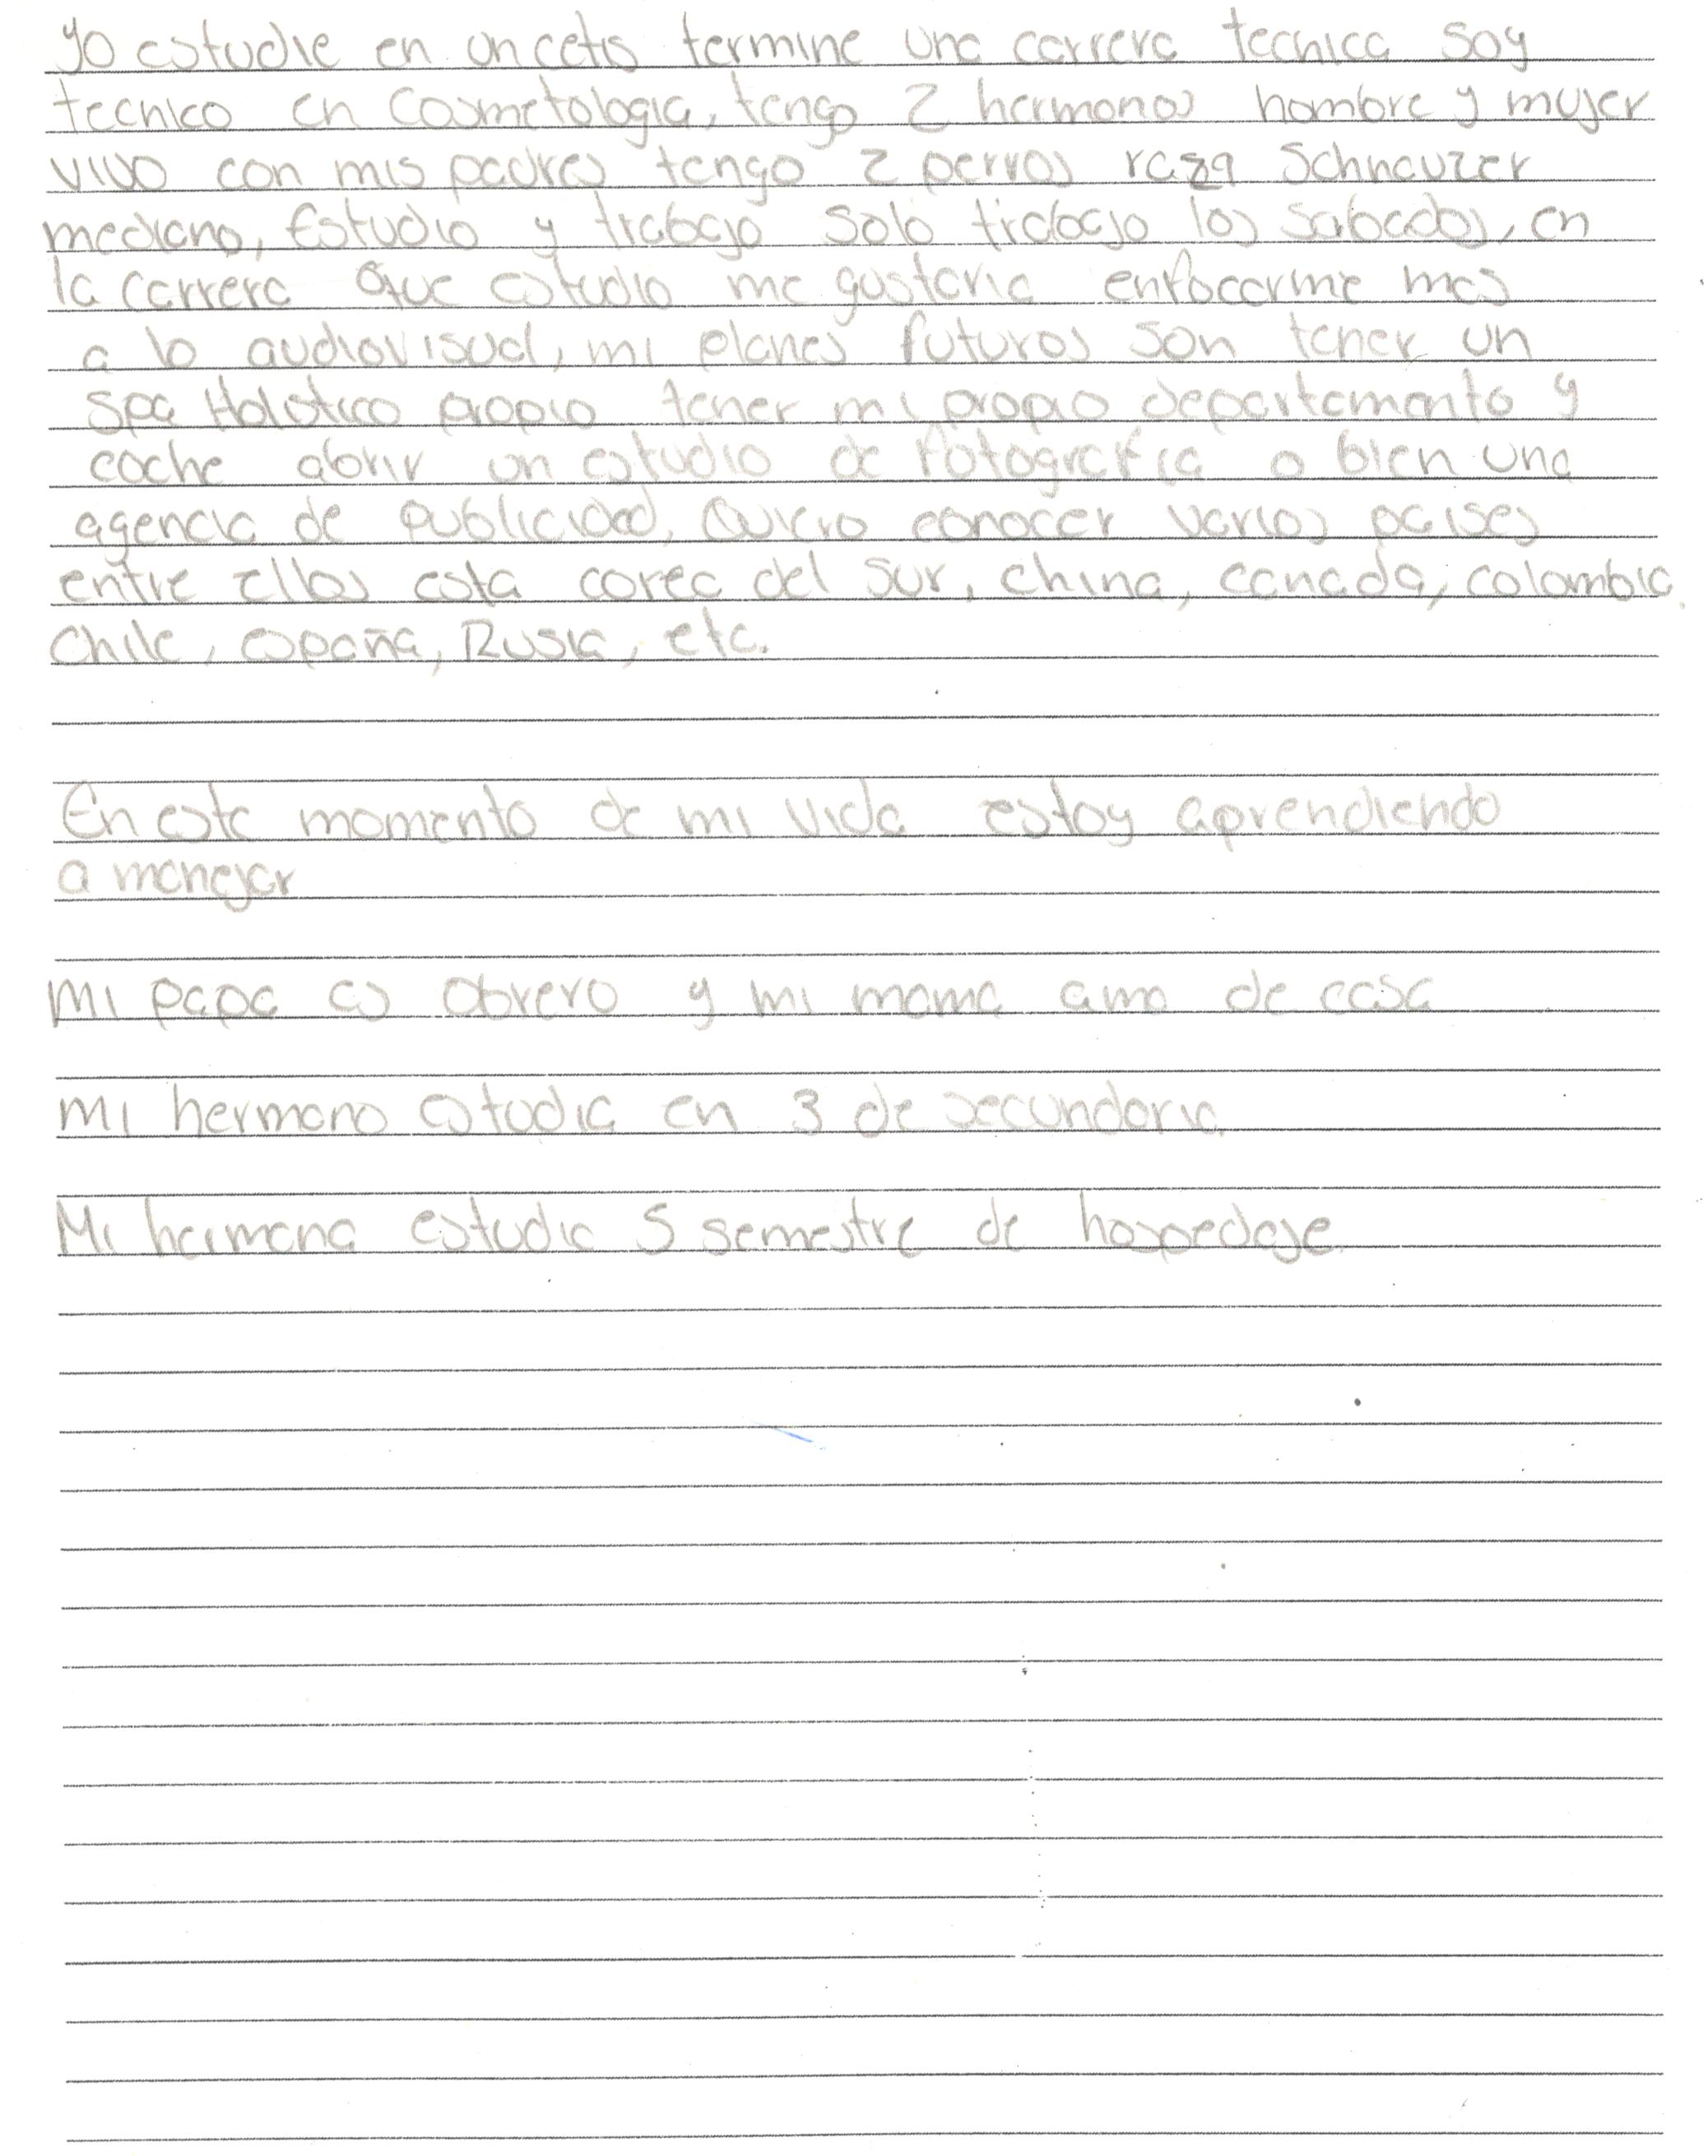 yo estudie en un cetis termine una carrera tecnica soy
tecnico en cosmetologia, tengo 2 hermanos hombre y mujer
vivo con mis padres tengo 2 perros raza Schnauzer
mediano, Estudio y trabajo solo trabajo los sabados, en
la carrera que estudio me gustaria enfocarme mas
a lo audiovisual, mi planes futuros son tener un
spa Holistico propio tener mi propio departamento y
coche abrir un estudio de fotografia o bien una
agencia de publicidad, Quiero conocer varios paises
entre ellos esta corea del sur, china, canada, colombia,
Chile, españa, Rusia, etc.
En este momento de mi vida estoy aprendiendo
a manejar
Mi papa es obrero y mi mama ama de casa
Mi hermano estudia en 3 de secundaria
Mi hermana estudia 5 semestre de hospedaje.